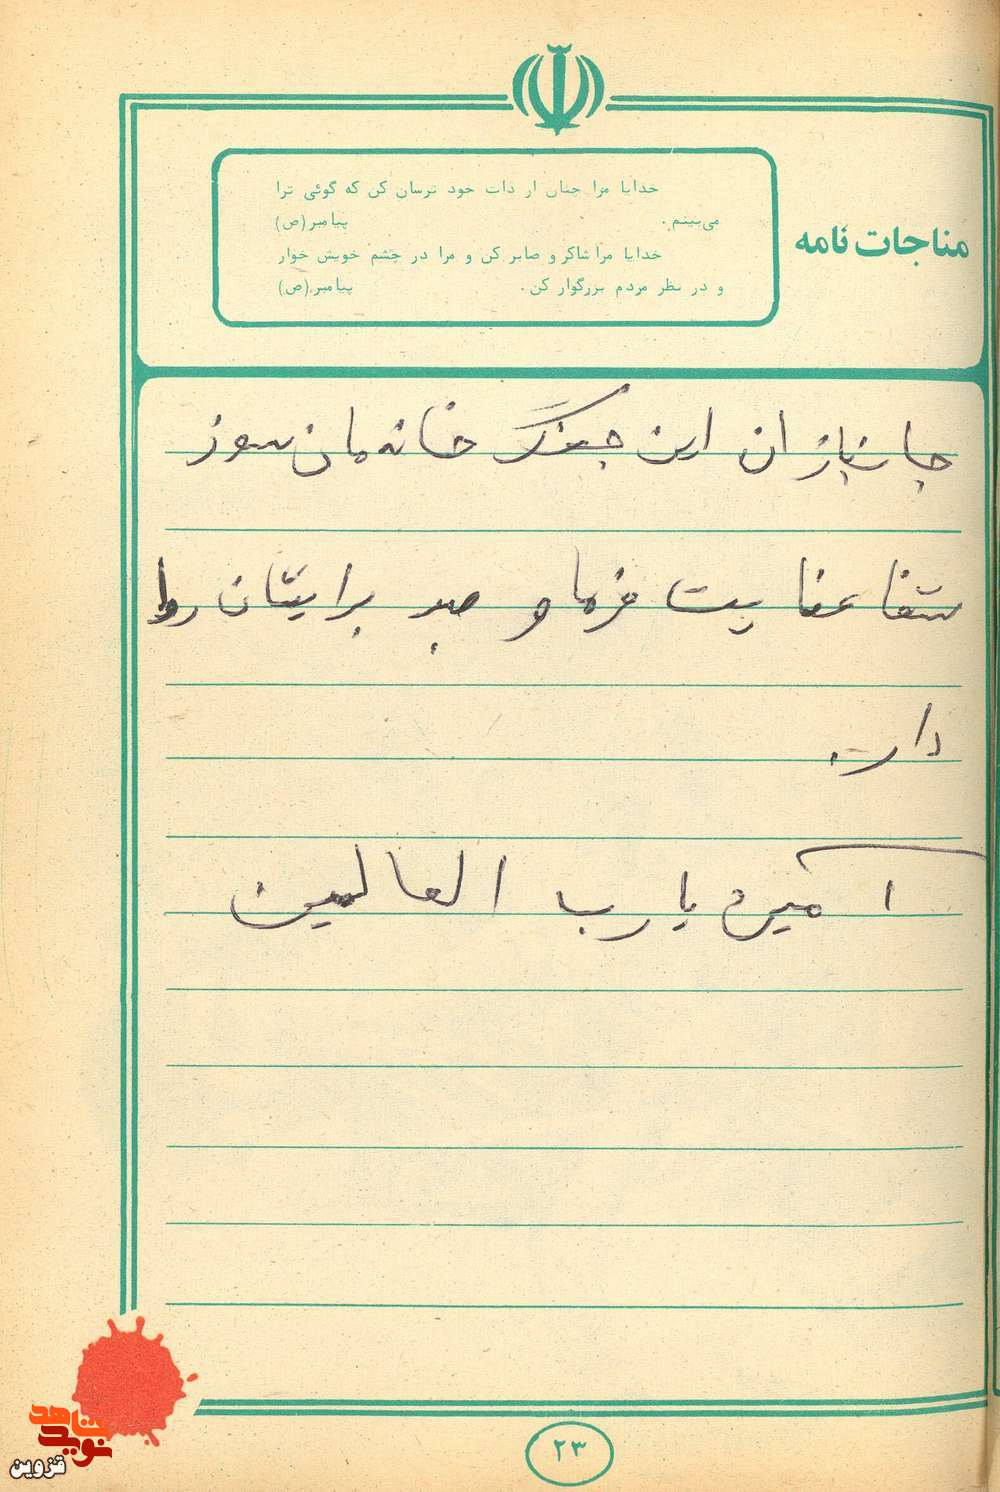 مناجات نامه
خدایا مرا چنان از ذات خود ترسان کن که گوئی ترا
می‌بینم. پیامبر(ص)
خدایا مرا شاکر و صابر کن و مرا در چشم خویش خوار
و در نظر مردم بزرگوار کن. پیامبر(ص)
جانبازان این جنگ خانه مان سوز
شفا عنایت فرما و صبر برایشان روا
دار.
آمین یا رب العالمین
۲۳
نوید شاهد
قزوین